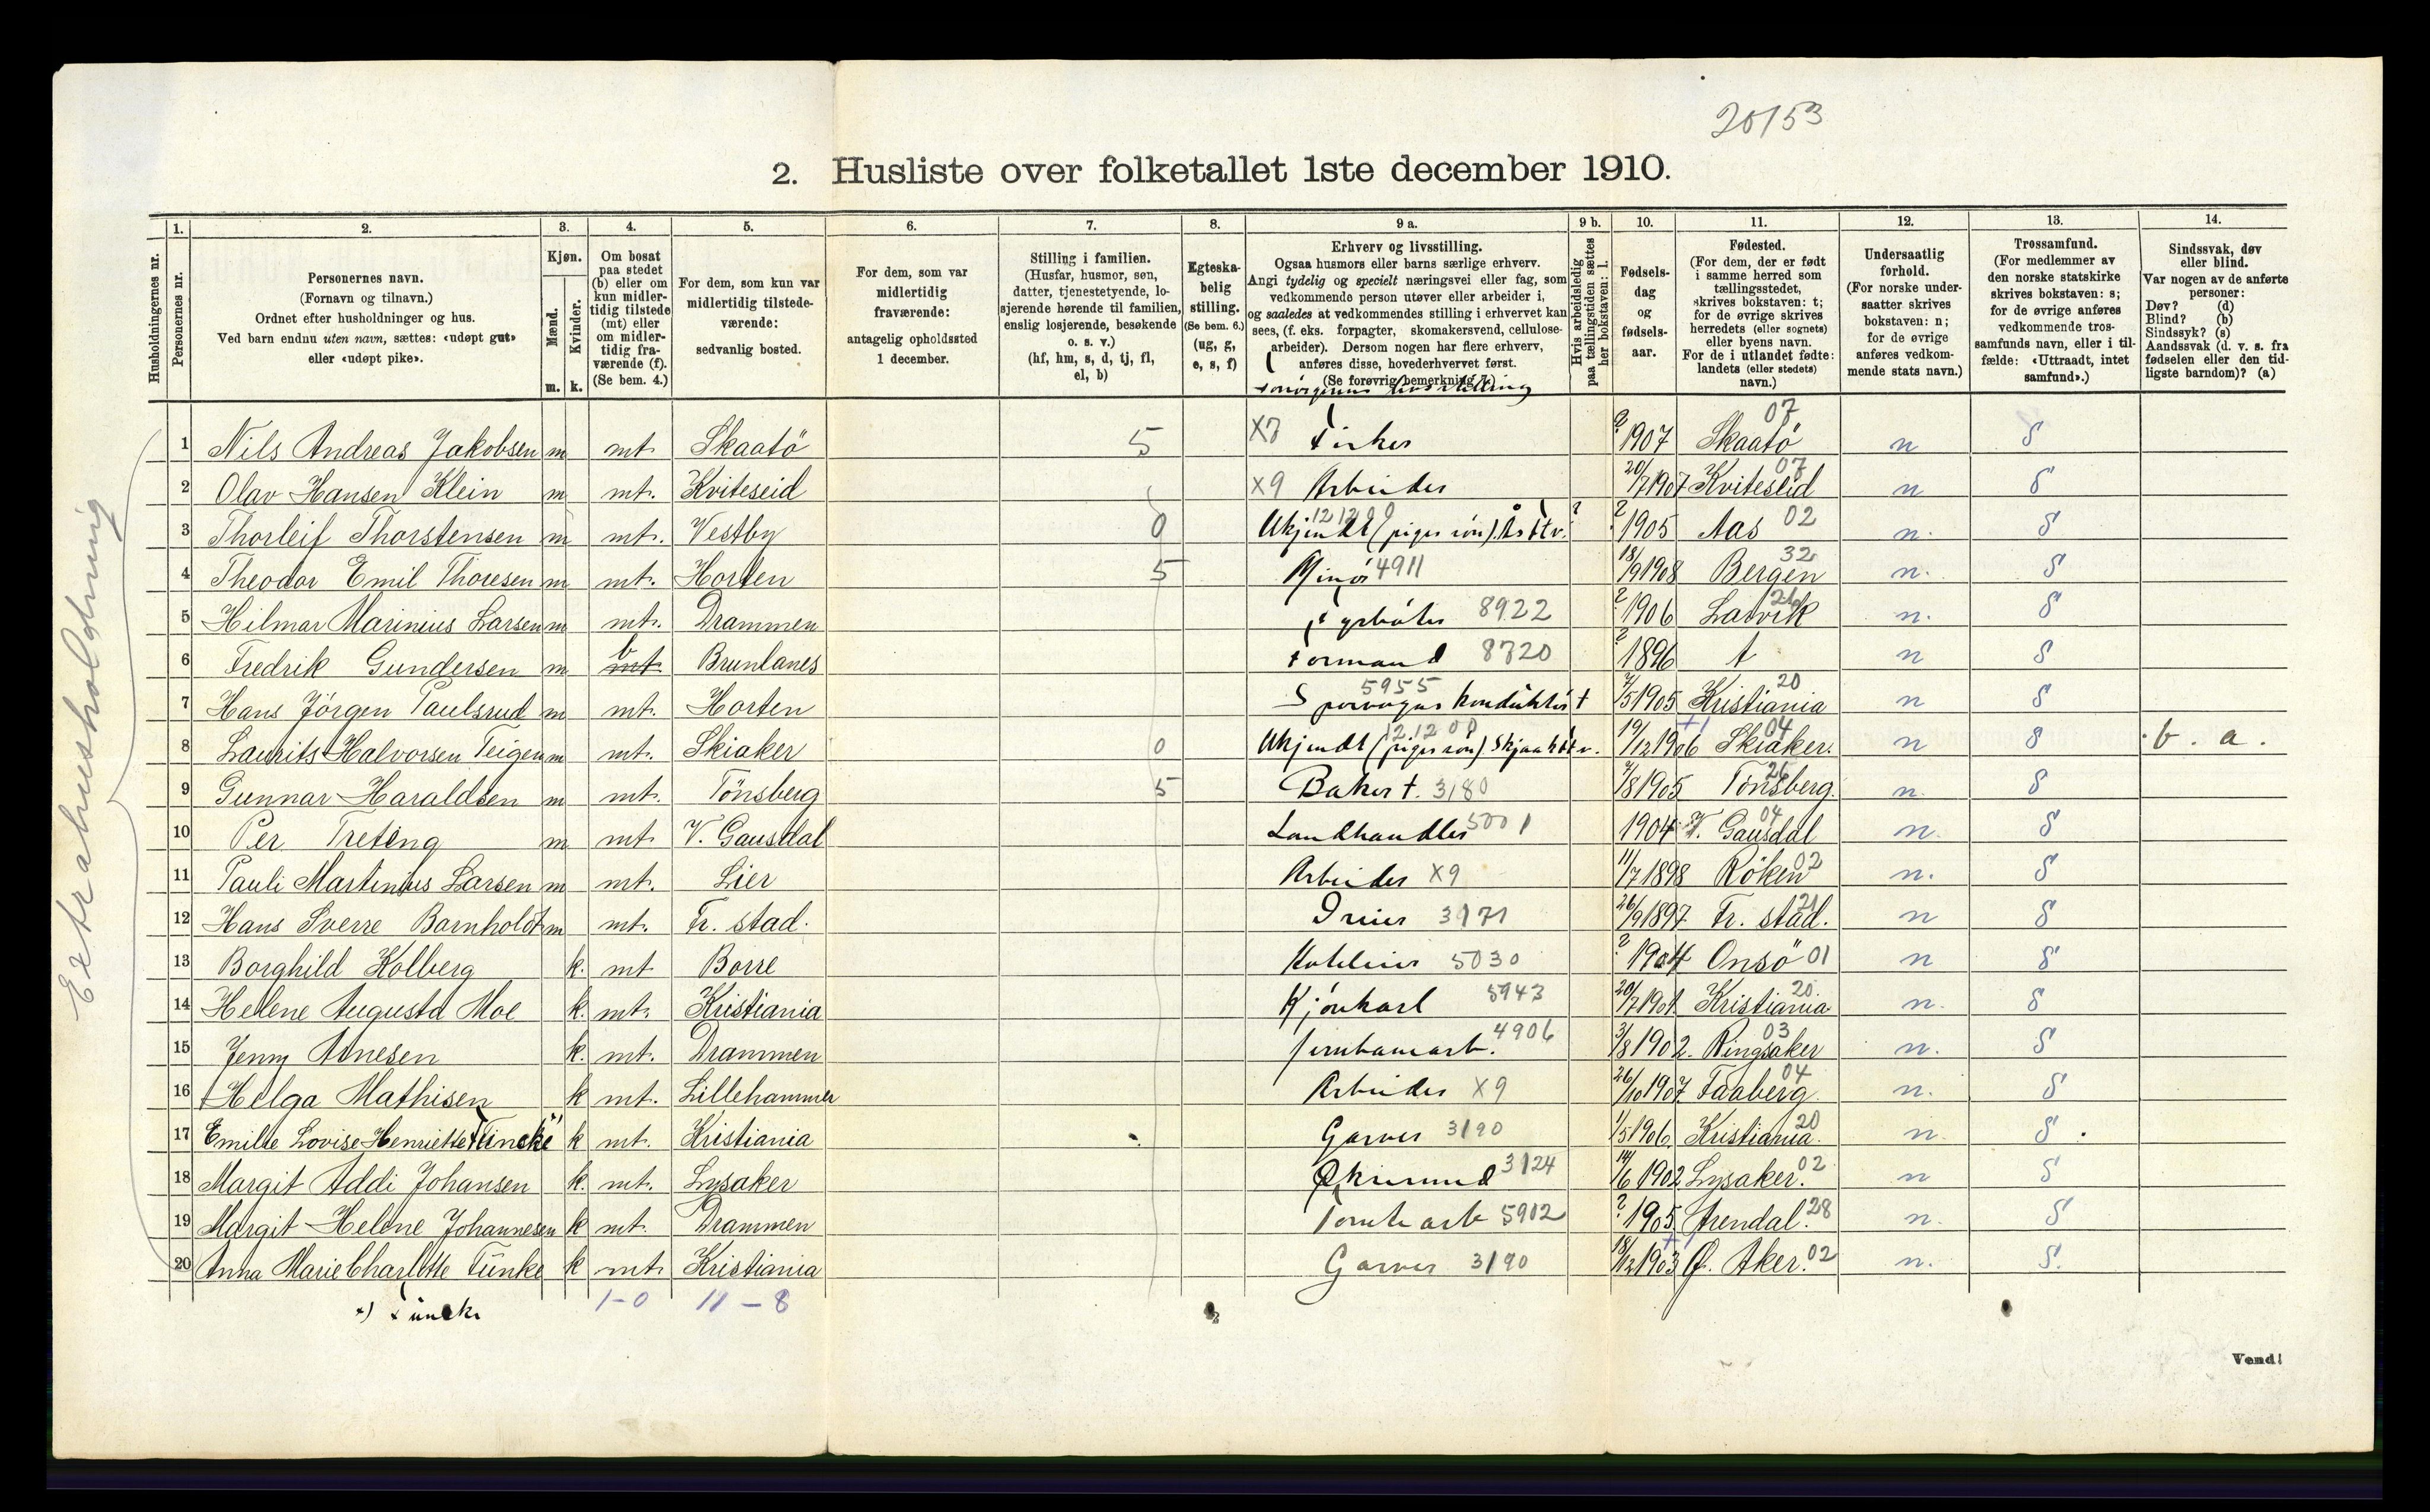 20153
2. Husliste over folketallet 1ste december 1910.
1. 2. 3. 4. 5. 6. 7. 8. 9 a. 9 b. 10. 11. 12. 13. 14.
Husholdningernes nr.
Personernes nr.
Personernes navn.
(Fornavn og tilnavn.)
Ordnet efter husholdninger og hus.
Ved barn endnu uten navn, sættes: «udøpt gut»
eller «udøpt pike».
Kjøn.
Mænd.
Kvinder.
m. k.
Om bosat
paa stedet
(b) eller om
kun midler-
tidig tilstede
(mt) eller
om midler-
tidig fra-
værende (f).
(Se bem. 4.)
For dem, som kun var
midlertidig tilstede-
værende:
sedvanlig bosted.
For dem, som var
midlertidig
fraværende:
antagelig opholdssted
1 december.
Stilling i familien.
(Husfar, husmor, søn,
datter, tjenestetyende, lo-
sjerende hørende til familien,
enslig losjerende, besøkende
o. s. v.)
(hf, hm, s, d, tj, fl,
el, b)
Egteska-
belig
stilling.
(Se bem. 6.)
(ug, g,
e, s, f)
Erhverv og livsstilling.
Ogsaa husmors eller barns særlige erhverv.
Angi tydelig og specielt næringsvei eller fag, som
vedkommende person utøver eller arbeider i,
og saaledes at vedkommendes stilling i erhvervet kan
sees, (f. eks. forpagter, skomakersvend, cellulose-
arbeider). Dersom nogen har flere erhverv,
anføres disse, hovederhvervet først.
(Se forøvrig bemerkning 7.)
Forsørgerens livsstilling
Hvis arbeidsledig
paa tællingstiden sættes
her bokstaven: l.
Fødsels-
dag
og
fødsels-
aar.
Fødested.
(For dem, der er født
i samme herred som
tællingsstedet,
skrives bokstaven: t;
for de øvrige skrives
herredets (eller sognets)
eller byens navn.
For de i utlandet fødte:
landets (eller stedets)
navn.)
Undersaatlig
forhold.
(For norske under-
saatter skrives
bokstaven: n;
for de øvrige
anføres vedkom-
mende stats navn.)
Trossamfund.
(For medlemmer av
den norske statskirke
skrives bokstaven: s;
for de øvrige anføres
vedkommende tros-
samfunds navn, eller i til-
fælde: «Uttraadt, intet
samfund».)
Sindssvak, døv
eller blind.
Var nogen av de anførte
personer:
Døv? (d)
Blind? (b)
Sindssyk? (s)
Aandssvak (d. v. s. fra
fødselen eller den tid-
ligste barndom)? (a)
Extrahusholdning
1 Nils Andreas Jakobsen m mt. Skaatö 5 X7 Fisker ? 1907 Skaatö 07 n S
2 Olav Hansen Klein m mt. Kviteseid X9 Arbeider 20/7 1907 Kviteseid 07 n S
3 Thorleif Thorstensen m mt. Vestby 0 Ukjendt (piges sön) Ås ftv. 121200 ? ? 1905 Aas 02 n. S
4 Theodor Emil Thoresen m mt. Horten 5 Minör 4911 18/9 1908 Bergen 32 n. S
5 Hilmar Marinius Larsen m mt. Drammen Fyrböter 8922 ? 1906 Larvik n. S
6 Fredrik Gundersen m mt b Brunlanes Formand 8720 ? 1896 t n S
7 Hans Jörgen Paulsrud m mt. Horten Sporvogns konduktör † 5955 7/5 1905 Kristiania 20 n S
8 Laurits Halvorsen Teigen m mt. Skiaker 0 Ukjendt (piges sön) Skjaak ftv. 121200 19/12 1906 Skiaker. 04 n S b. a.
9 Gunnar Haraldsen m mt. Tönsberg 5 Baker †. 3180 7/8 1905 Tönsberg. n. S
10 Per Treteng m mt. V. Gausdal Landhandler 5001 1904 V. Gausdal 04 n. S
11 Pauli Martinius Larsen m mt. Lier Arbeider X9 11/7 1898 Röken 02 n. S
12 Hans Sverre Barnholdt m mt. Fr. stad. Dreier 3171 26/9 1897 Fr. stad. 21 n S
13 Borghild Kolberg k. mt Borre Hoteleier 5030 ? 1904 Onsö 01 n S
14 Helene Augusta Moe k. mt. Kristiania Kjörekarl 5943 20/7 1901 Kristiania 20 n. S
15 Jenny Arnesen k. mt. Drammen Jernbanearb. 4906 3/8 1902. Ringsaker 03 n. S
16 Helga Mathisen k mt. Lillehammer Arbeider X9 26/10 1907 Faaberg 04 n. S
17 Emilie Lovise Henriette Füncke k mt. Kristiania Garver 3190 1/5 1906 Kristiania. 20 n. S
18 Margit Addi Johansen k. mt. Lysaker 3124 14/6 1902 Lysaker. 02 n S
19 Margit Helene Johannesen k mt. Drammen Tomtearb 5902 ? 1905 Arendal. 28 n. S
20 Anna Marie Charlotte Fünke k mt. Kristiania Garver 3190 18/12 1903 Ø. Aker. 02 n. S.
x) Füncke 1-0 11-8
Vend!